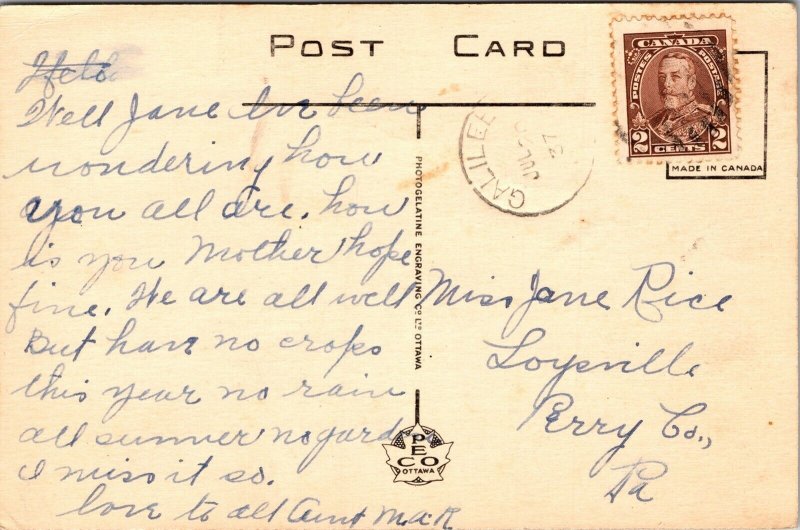 POST CARD
CANADA
POSTES POSTAGE
2 CENTS 2
MADE IN CANADA
GALILEE
JUL
37
Well Jane Iv been
wondering how
you all are. how
is you Mother hope
fine. We are all well
But have no crops
this year no rain
all summer no garden
I miss it so.
love to all Aunt
PHOTOGELATINE ENGRAVING CO LTD OTTAWA
PECO
OTTAWA
Miss Jane Rice
Loysville
Perry Co.,
Pa